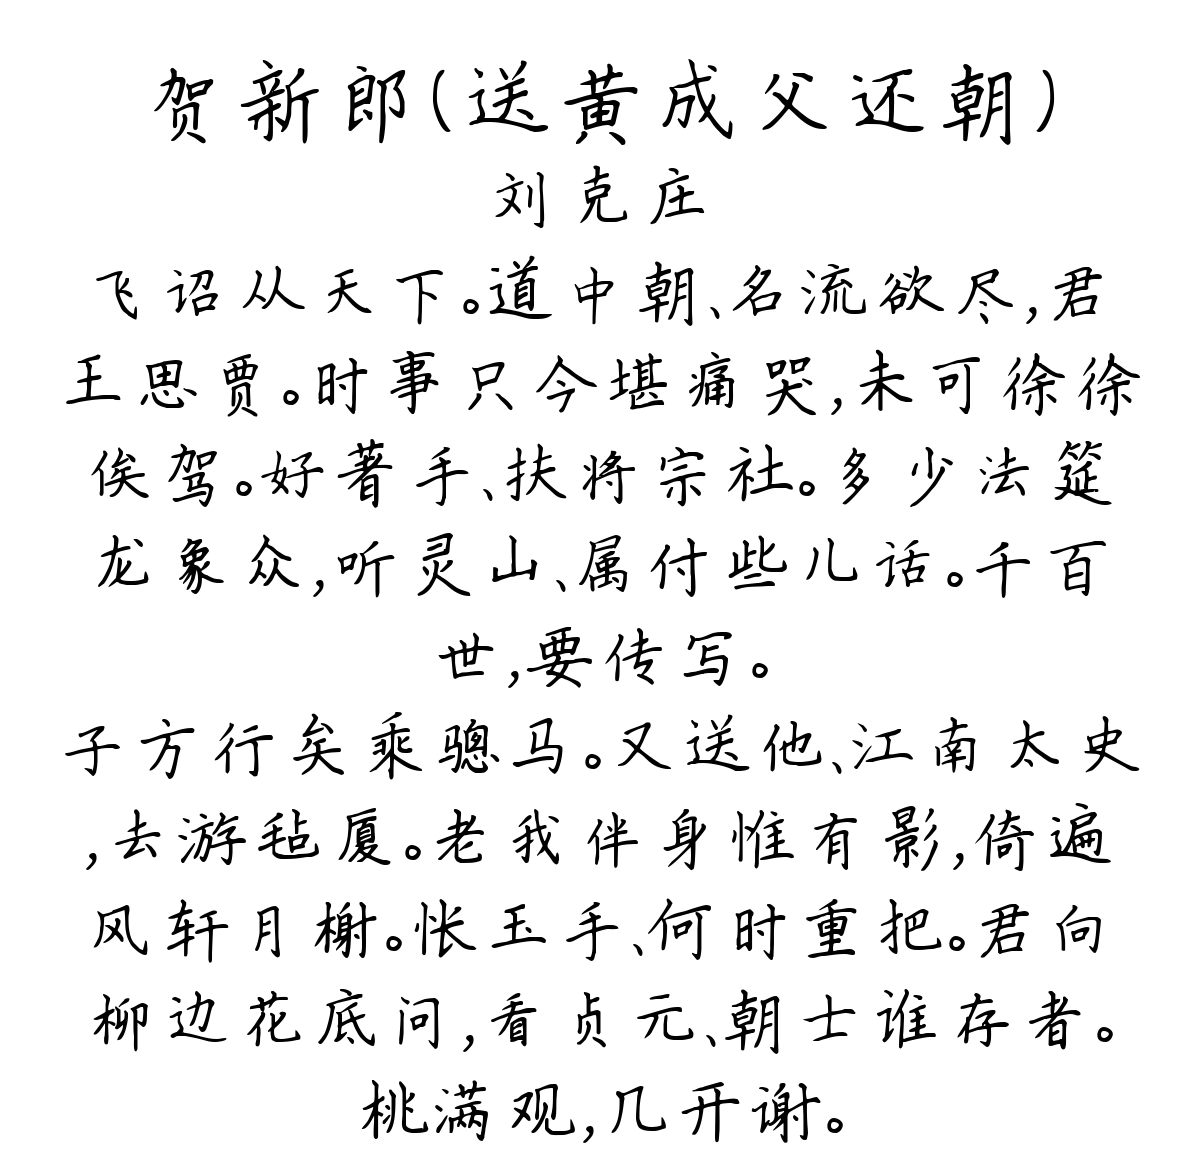 贺新郎(送黄成父还朝)
刘克庄
飞诏从天下。道中朝、名流欲尽,君
王思贾。时事只今堪痛哭,未可徐徐
俟驾。好著手、扶将宗社。多少法筵
龙象众,听灵山、属付些儿话。千百
世,要传写。
子方行矣乘骢马。又送他、江南太史
,去游毡厦。老我伴身惟有影,倚遍
风轩月榭。怅玉手、何时重把。君向
柳边花底问,看贞元、朝士谁存者。
桃满观,几开谢。